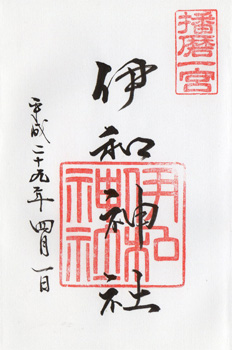 播磨一宮
伊和神社
伊和神社
平成二十九年四月一日